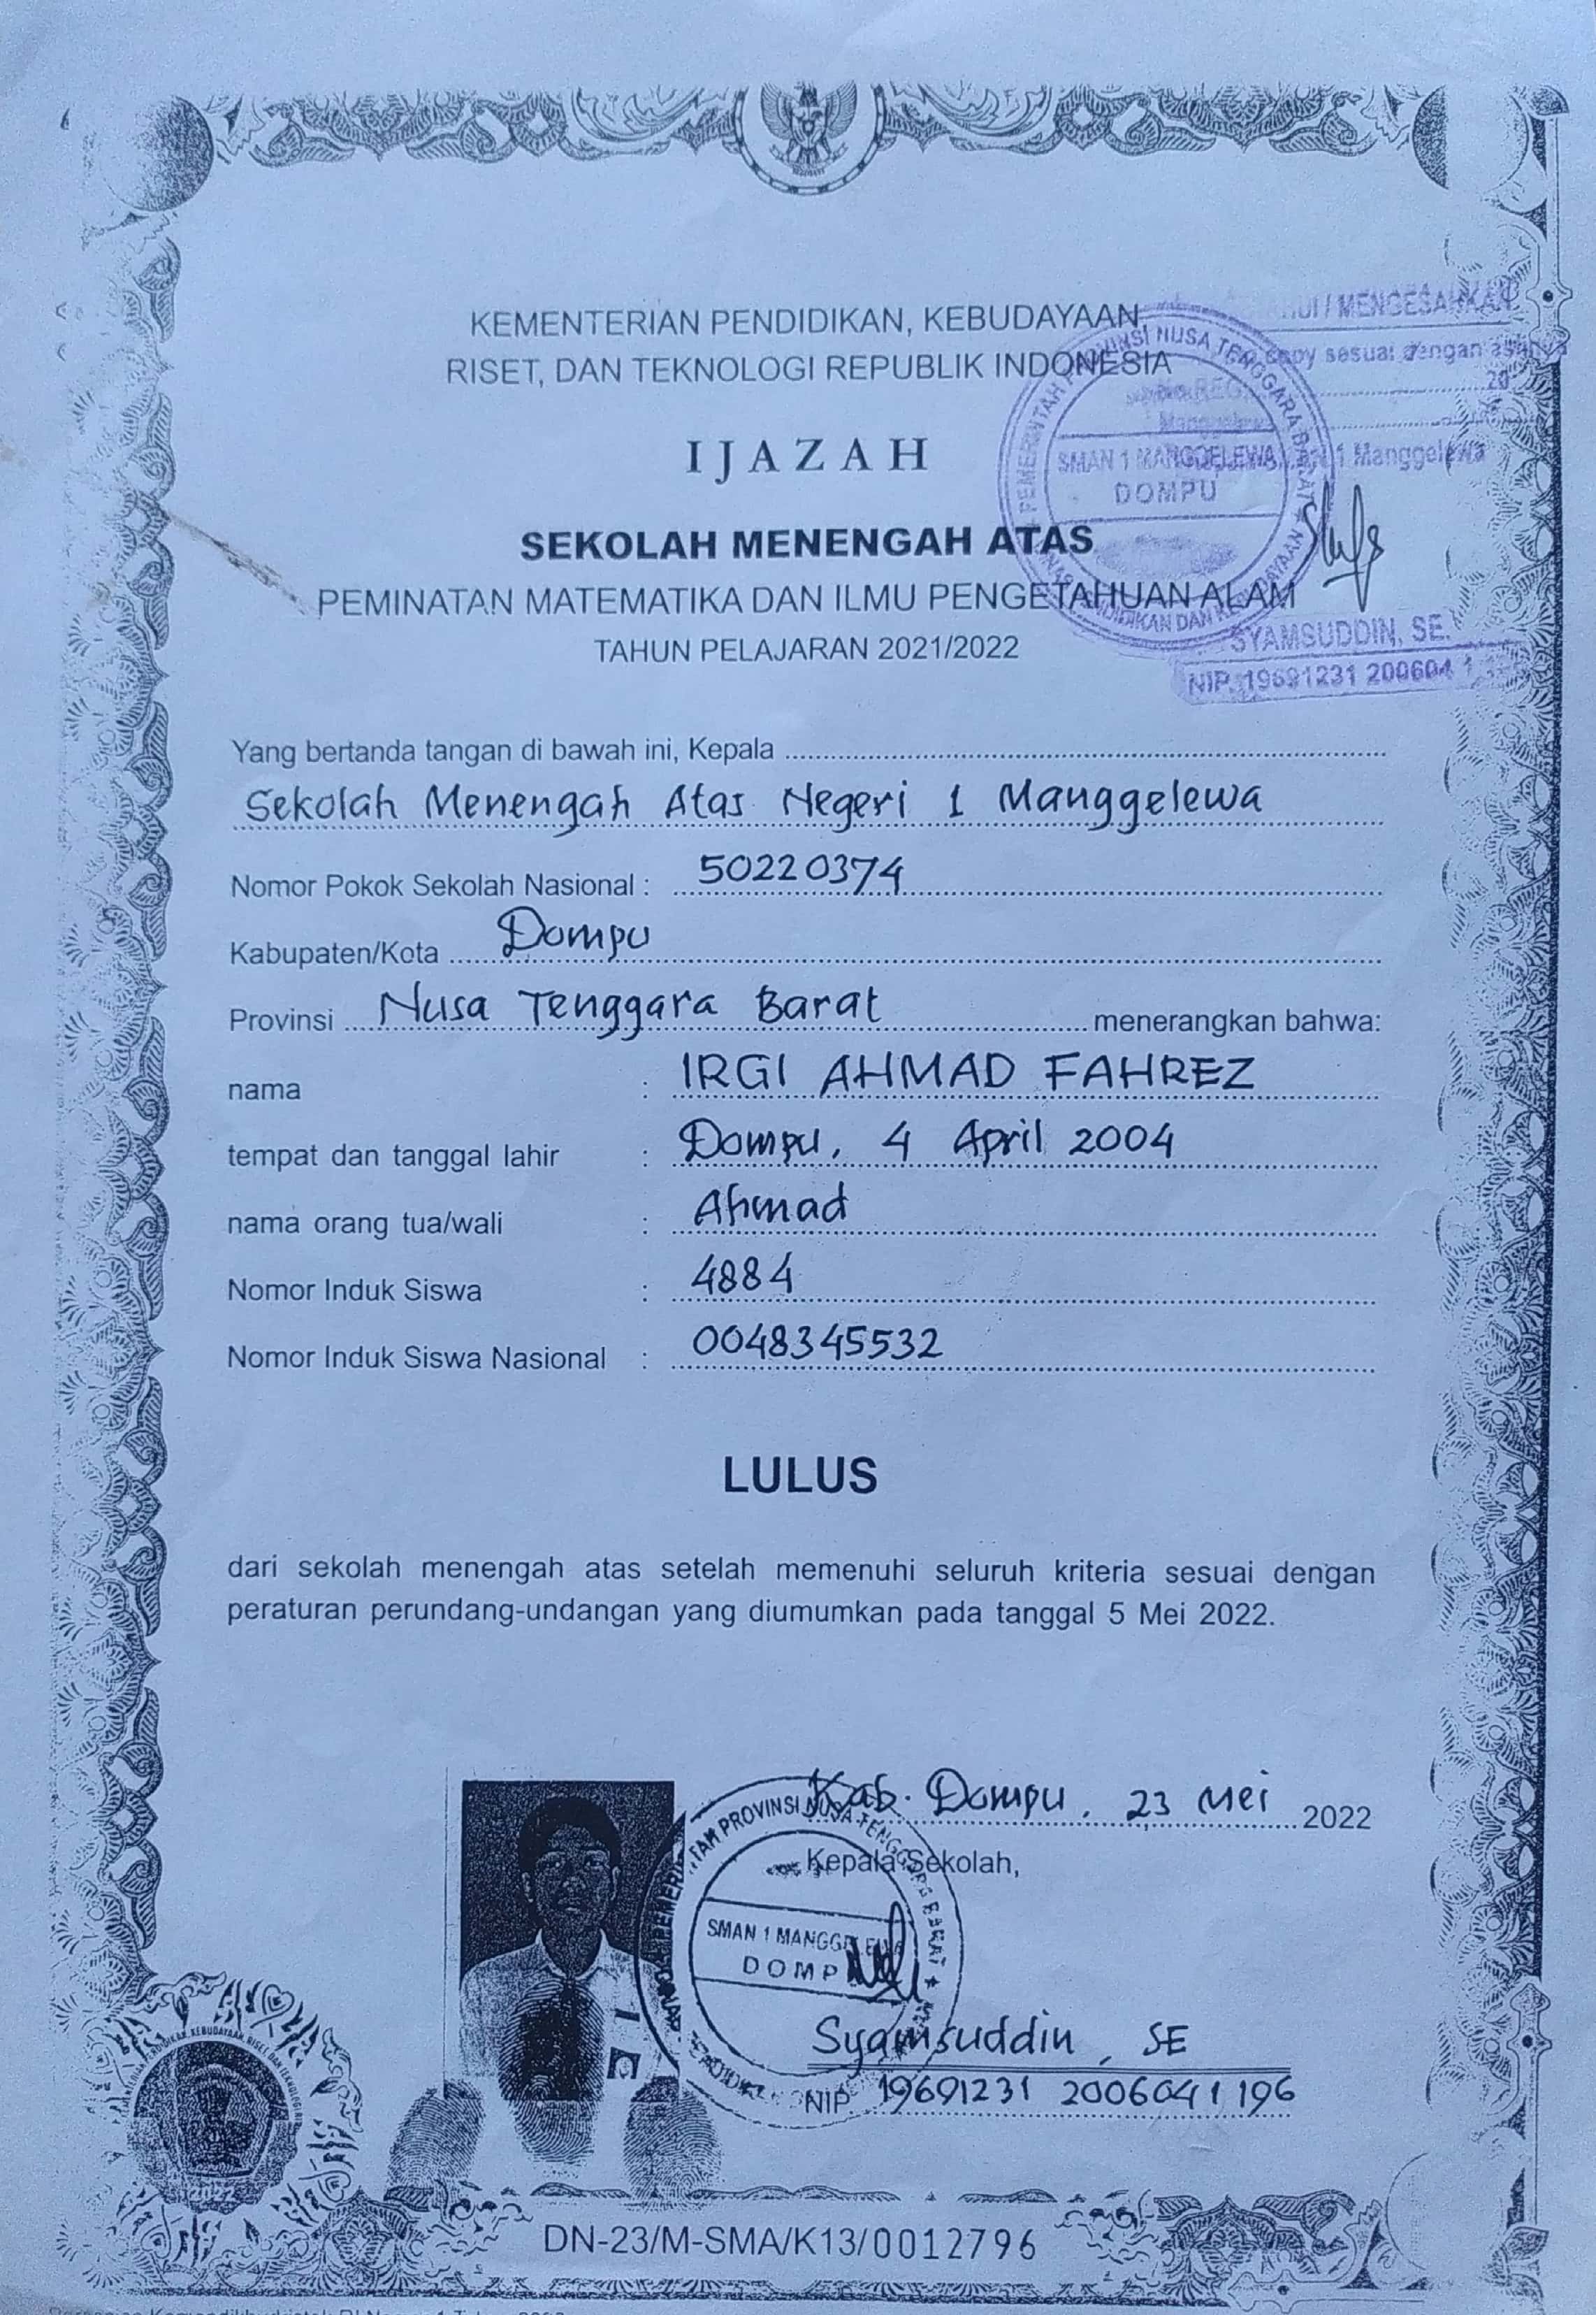 KEMENTERIAN PENDIDIKAN, KEBUDAYAAN
RISET, DAN TEKNOLOGI REPUBLIK INDONESIA
IJAZAH
SEKOLAH MENENGAH ATAS
PEMINATAN MATEMATIKA DAN ILMU PENGETAHUAN ALAM
TAHUN PELAJARAN 2021/2022
/ MENGESAHKAN
copy sesuai dengan
20
PEMERINTAH PROVINSI NUSA TENGGARA BARAT
SMAN 1 MANGGELEWA
DOMPU
1 Manggelewa
SYAMSUDDIN, SE.
NIP. 19691231 200604 1
Yang bertanda tangan di bawah ini, Kepala
Sekolah Menengah Atas Negeri 1 Manggelewa
Nomor Pokok Sekolah Nasional : 50220374
Kabupaten/Kota Dompu
Provinsi Nusa Tenggara Barat menerangkan bahwa:
nama : IRGI AHMAD FAHREZ
tempat dan tanggal lahir : Dompu, 4 April 2004
nama orang tua/wali : Ahmad
Nomor Induk Siswa : 4884
Nomor Induk Siswa Nasional : 0048345532
LULUS
dari sekolah menengah atas setelah memenuhi seluruh kriteria sesuai dengan
peraturan perundang-undangan yang diumumkan pada tanggal 5 Mei 2022.
Kab. Dompu, 23 Mei 2022
Kepala Sekolah,
PROVINSI NUSA TENGGARA BARAT
SMAN 1 MANGGELEWA
DOMP
Syamsuddin, SE
NIP. 19691231 2006041 196
2022
DN-23/M-SMA/K13/0012796